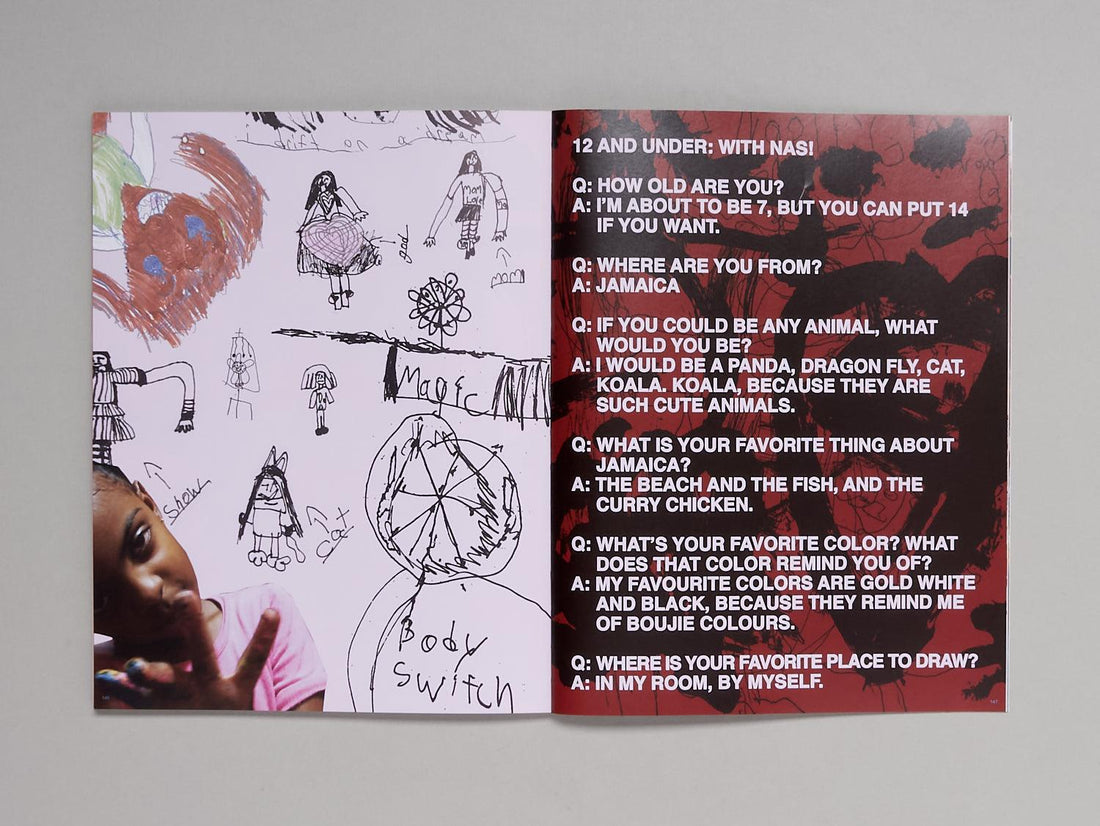 drift on a dream
god
mom
Love
Magic
show
Cat
Body
Switch
12 AND UNDER: WITH NAS!
Q: HOW OLD ARE YOU?
A: I'M ABOUT TO BE 7, BUT YOU CAN PUT 14
IF YOU WANT.
Q: WHERE ARE YOU FROM?
A: JAMAICA
Q: IF YOU COULD BE ANY ANIMAL, WHAT
WOULD YOU BE?
A: I WOULD BE A PANDA, DRAGON FLY, CAT,
KOALA. KOALA, BECAUSE THEY ARE
SUCH CUTE ANIMALS.
Q: WHAT IS YOUR FAVORITE THING ABOUT
JAMAICA?
A: THE BEACH AND THE FISH, AND THE
CURRY CHICKEN.
Q: WHAT'S YOUR FAVORITE COLOR? WHAT
DOES THAT COLOR REMIND YOU OF?
A: MY FAVOURITE COLORS ARE GOLD WHITE
AND BLACK, BECAUSE THEY REMIND ME
OF BOUJIE COLOURS.
Q: WHERE IS YOUR FAVORITE PLACE TO DRAW?
A: IN MY ROOM, BY MYSELF.
147